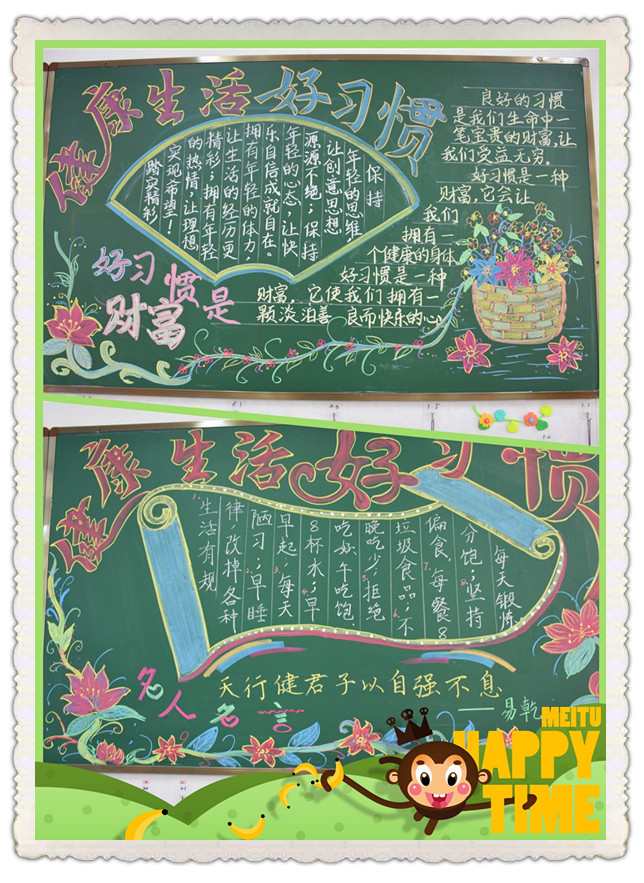 健康生活好习惯
保持
年轻的思维，
让创意思想
源源不绝；保持
年轻的心态，让快
乐自信成就自在。
拥有年轻的体力，
让生活的经历更
精彩；拥有年轻
的热情，让理想
实现希望！
踏实精彩
良好的习惯
是我们生命中一
笔宝贵的财富，让
我们受益无穷。
好习惯是一种
财富，它会让
我们
拥有
个健康的身体
好习惯是一种
财富，它使我们拥有一
颗淡泊善良而快乐的心
好习惯是
财富
健康生活好习惯
1.生活有规
律，改掉各种
陋习；2.早睡
早起，3.每天
8杯水；4.早
吃好、午吃饱、
晚吃少；5.拒绝
垃圾食品；6.不
偏食，7.每餐8
分饱；8.坚持
每天锻炼
名人名言
天行健君子以自强不息
——易乾
MEITU
HAPPY
TIME